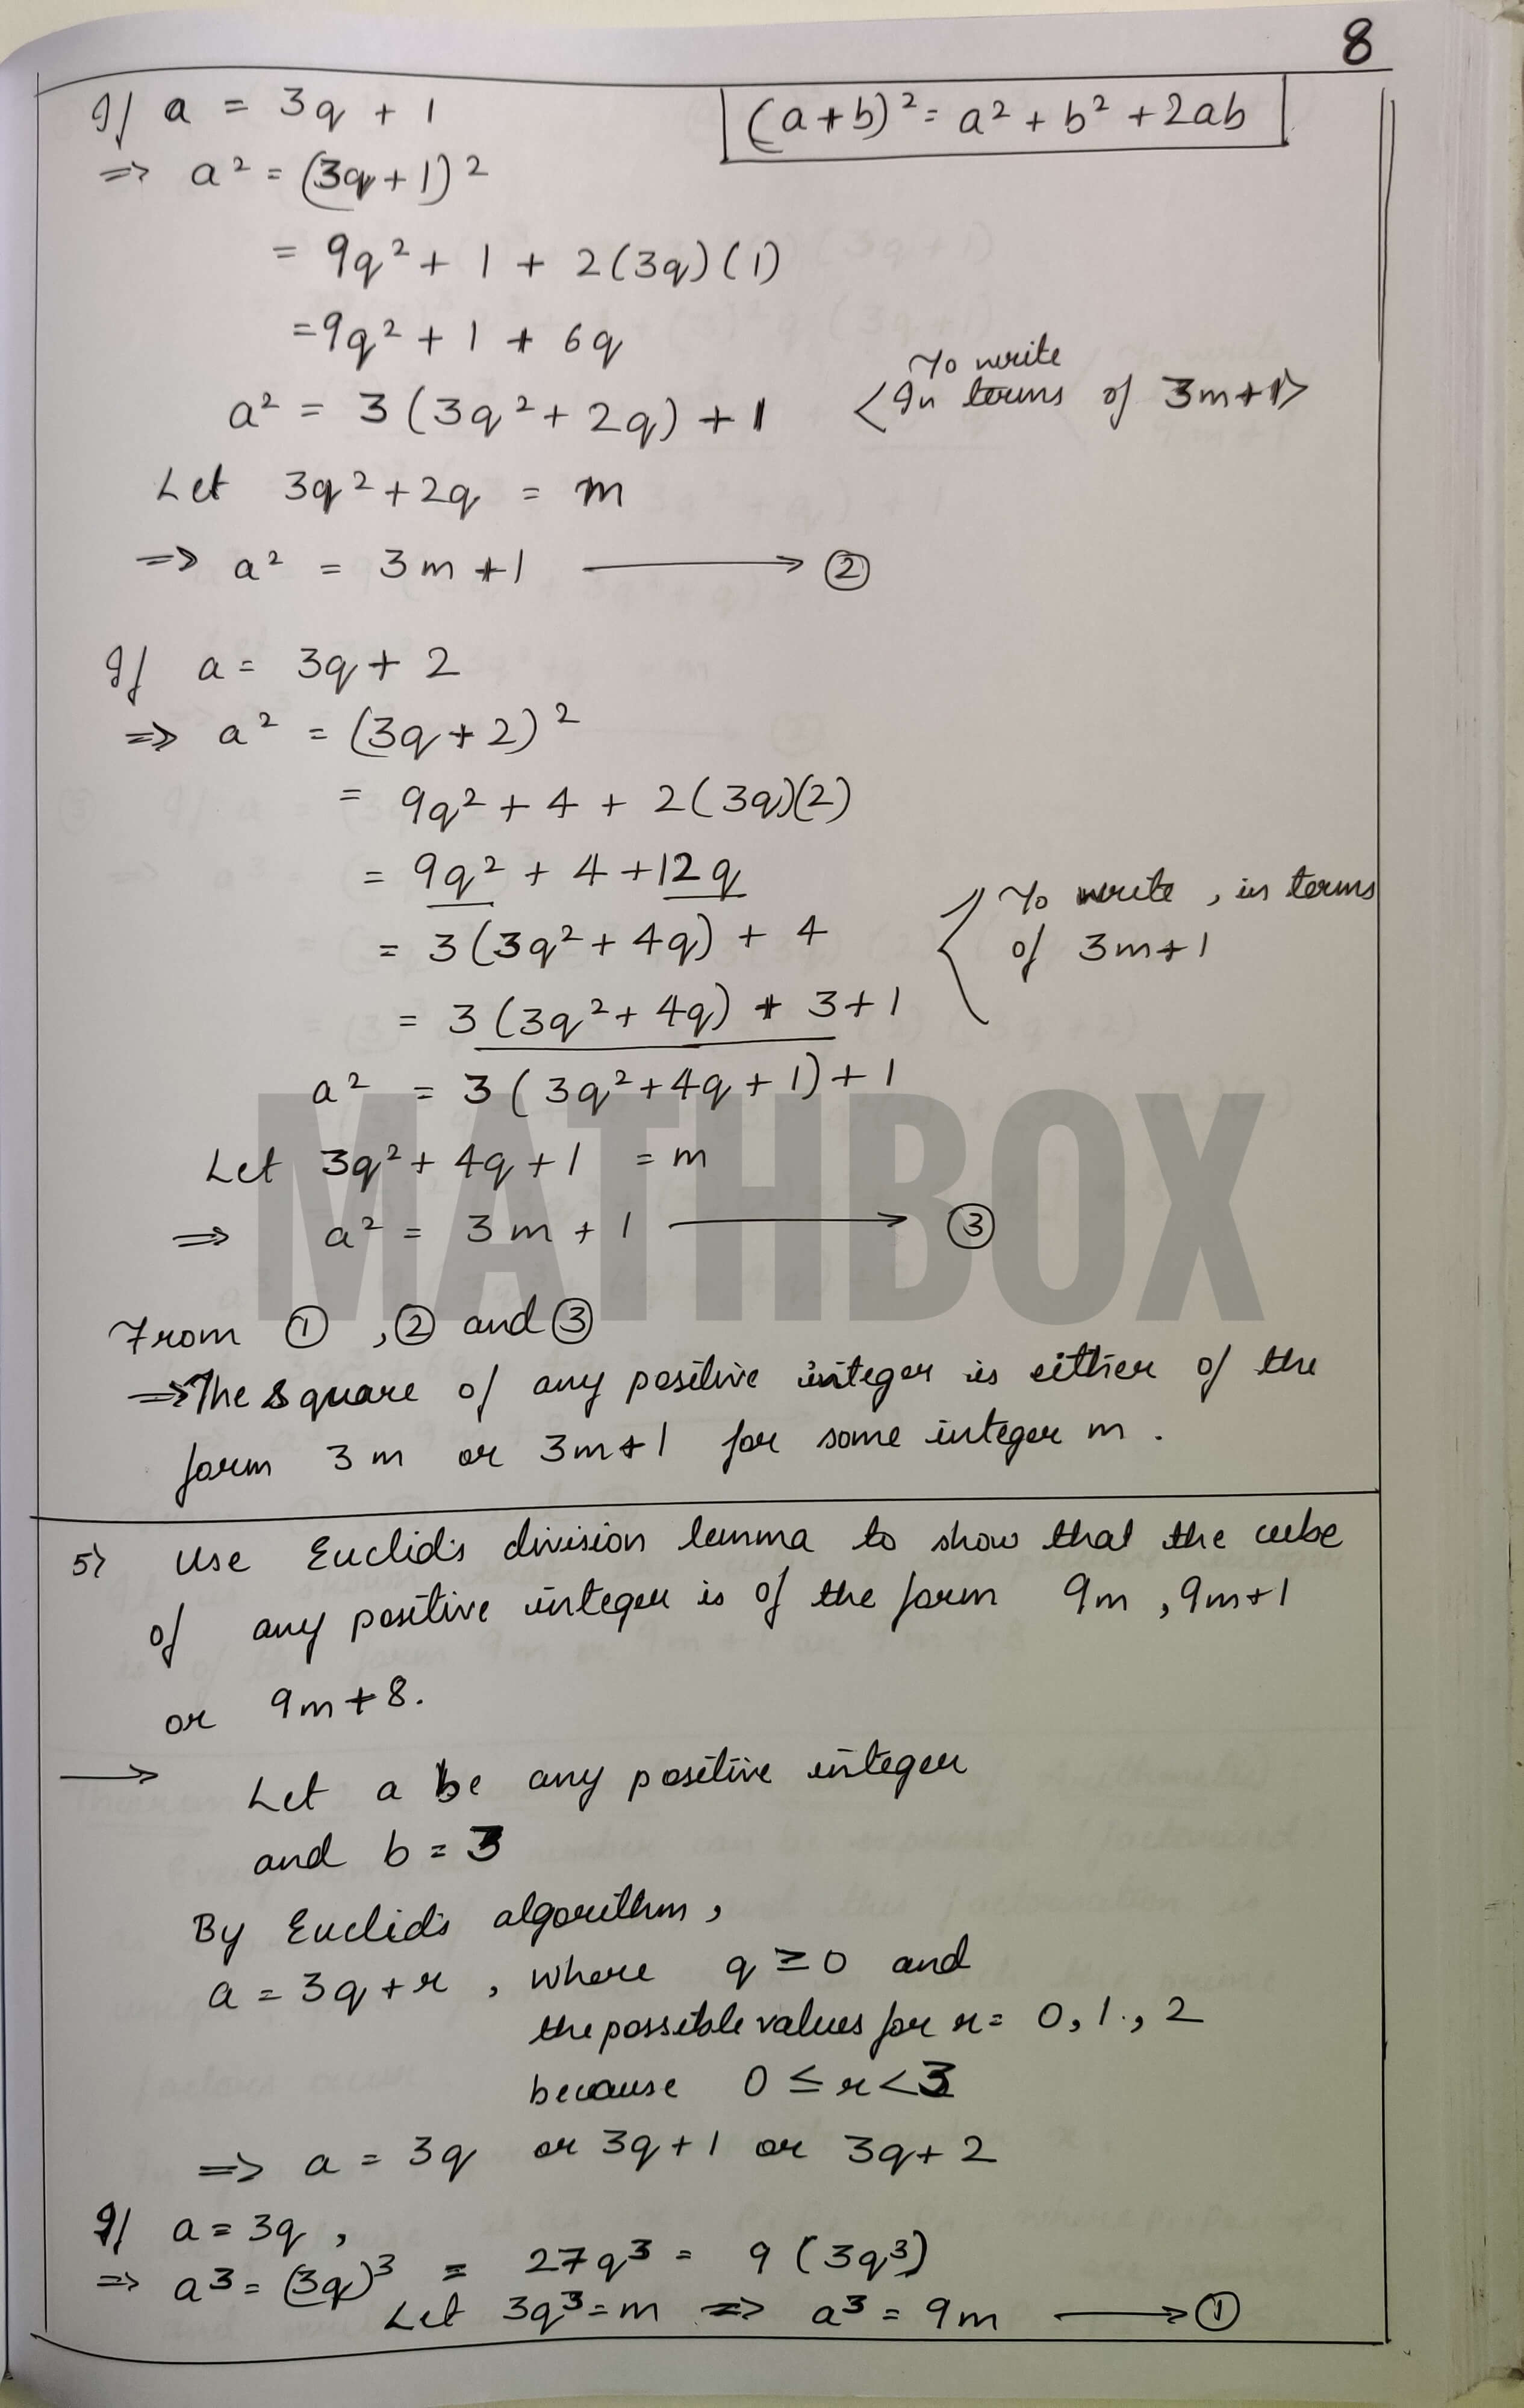 8
If a = 3q + 1
(a+b)² = a² + b² + 2ab
⇒ a² = (3q+1)²
= 9q² + 1 + 2(3q)(1)
= 9q² + 1 + 6q
To write
a² = 3(3q² + 2q) + 1 <In terms of 3m+1>
Let 3q² + 2q = m
⇒ a² = 3m + 1 ⟶ ②
If a = 3q + 2
⇒ a² = (3q + 2)²
= 9q² + 4 + 2(3q)(2)
= 9q² + 4 + 12q
To write, in terms
= 3(3q² + 4q) + 4
of 3m+1
= 3(3q² + 4q) + 3 + 1
a² = 3(3q² + 4q + 1) + 1
MATHBOX
Let 3q² + 4q + 1 = m
⇒ a² = 3m + 1 ⟶ ③
From ①, ② and ③
⇒ The square of any positive integer is either of the
form 3m or 3m+1 for some integer m.
5> Use Euclid's division lemma to show that the cube
of any positive integer is of the form 9m, 9m+1
or 9m+8.
⟶ Let a be any positive integer
and b = 3
By Euclid's algorithm,
a = 3q + r, where q ≥ 0 and
the possible values for r = 0, 1, 2
because 0 ≤ r < 3
⇒ a = 3q or 3q+1 or 3q+2
If a = 3q,
⇒ a³ = (3q)³ = 27q³ = 9(3q³)
Let 3q³ = m ⇒ a³ = 9m ⟶ ①